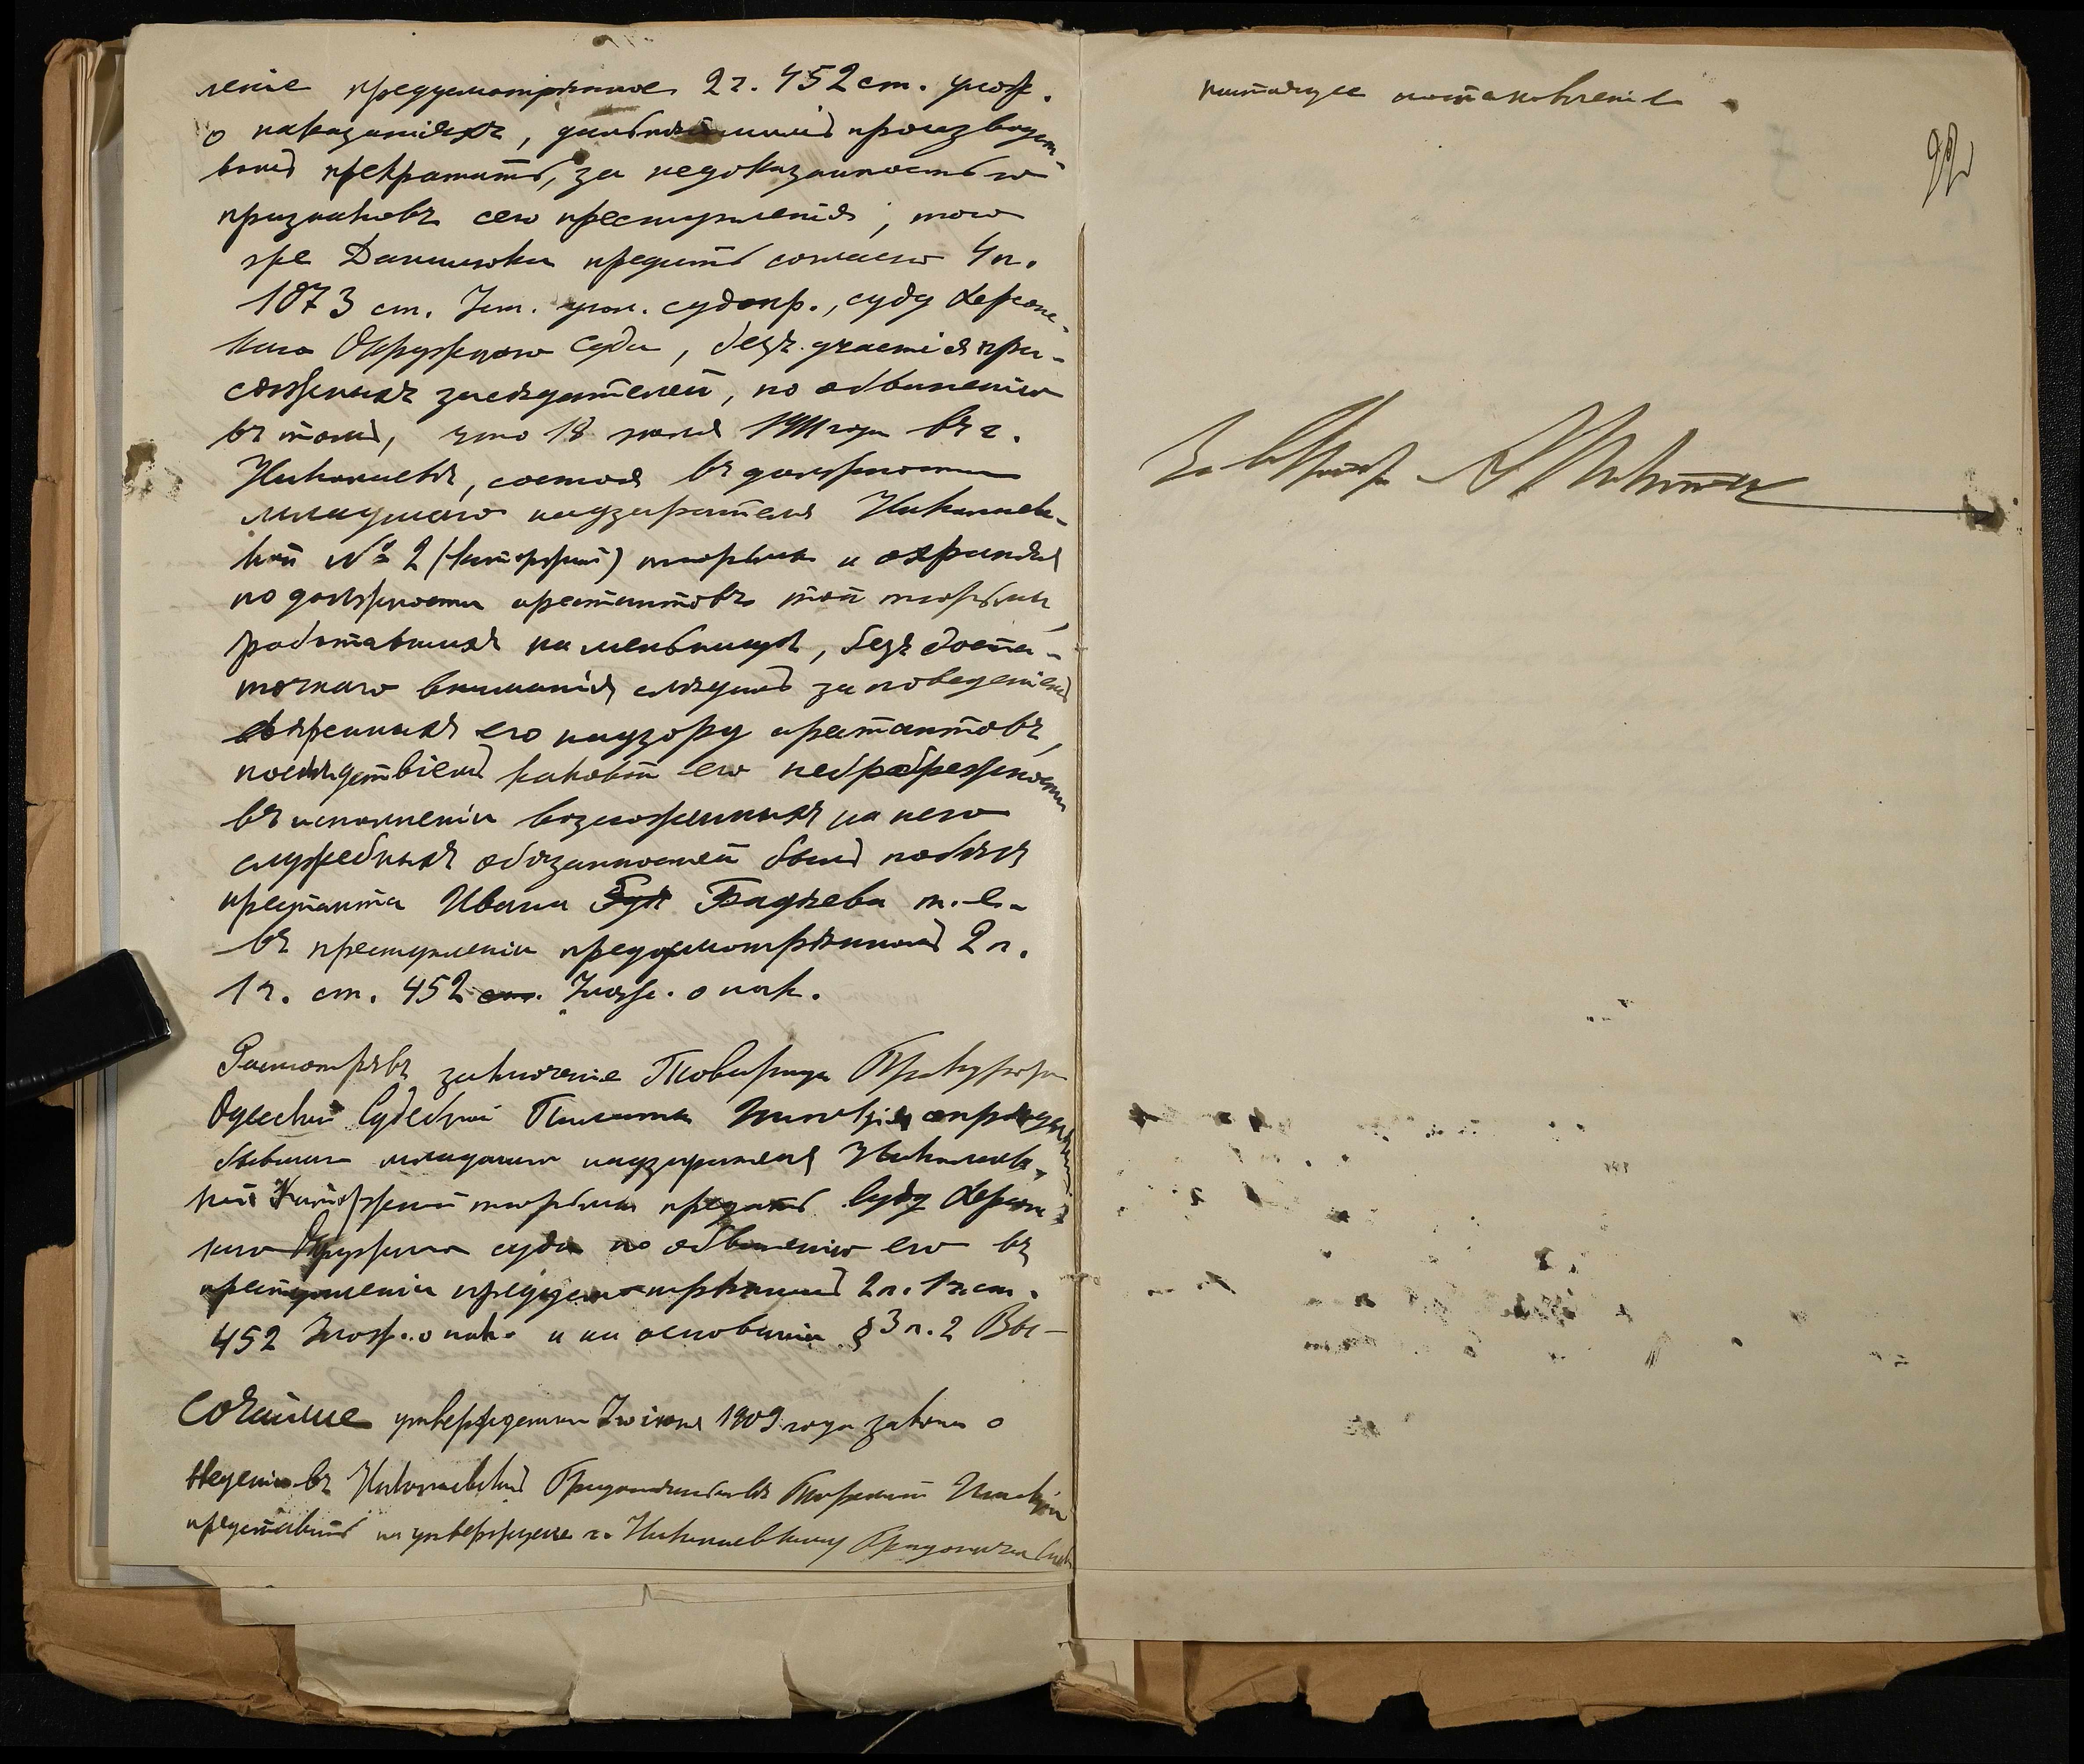 леніе предусмотрѣнное 2 ч. 452 ст. улож.
о наказаніяхъ, дальнѣйшимъ производст-
вомъ прекратить, за недоказанностью
признаковъ сего преступленія, того
же Данилюка предать согласно 4 п.
1073 ст. Уст. угол. судопр., суду Херсонс-
каго Окружного Суда, безъ участія при-
сяжныхъ засѣдателей, по обвиненію
въ томъ, что 18 іюля 1911 года въ г.
Николаевѣ, состоя въ должности
младшаго надзирателя Николаев-
кой № 2 (Каторжной) тюрьмы и охраняя
по должности арестантовъ той тюрьмы,
работавшихъ на мельницѣ, безъ доста-
точнаго вниманія слѣдилъ за поведеніемъ
ввѣренныхъ его надзору арестантовъ,
послѣдствіемъ каковой его небрежности
въ исполненіи возложенныхъ на него
служебныхъ обязанностей былъ побѣгъ
арестанта Ивана Бадѣева т. е.
въ преступленіи предусмотрѣнномъ 2 п.
1 ч. ст. 452 ст. Улож. о нак.
Разсмотрѣвъ заключеніе Товарища Прокурора
Одесской Судебной Палаты Инспекція опредѣляетъ:
бывшаго младшаго надзирателя Николаев-
кой Каторжной тюрьмы предать суду Херсон-
каго Окружнаго суда по обвиненію его въ
преступленіи предусмотрѣнномъ 2 п. 1 ч. ст.
452 Улож. о нак. и на основаніи § 3 п. 2 Вы-
сочайше утвержденнаго іюня 1909 года закона о
введеніи въ Николаевскомъ Градоначальствѣ Тюремной Инспекціи
представить на утвержденіе г. Николаевскому Градоначальн
настоящее постановленіе.
92